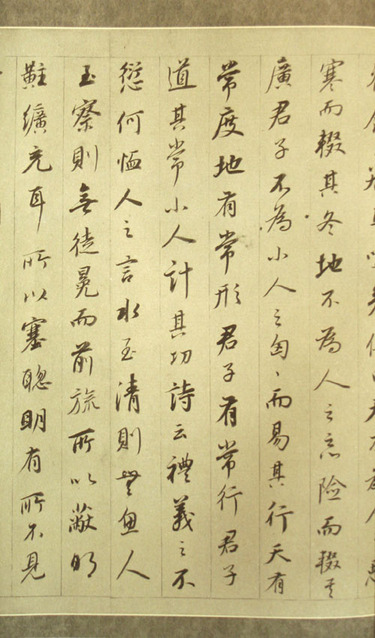 寒而輟其冬地不為人之惡險而輟其
廣君子不為小人之匈〻而易其行天有
常度地有常形君子有常行君子
道其常小人計其功詩云禮義之不
愆何恤人之言水至清則無魚人
至察則無徒冕而前旒所以蔽明
黈纊充耳所以塞聰明有所不見